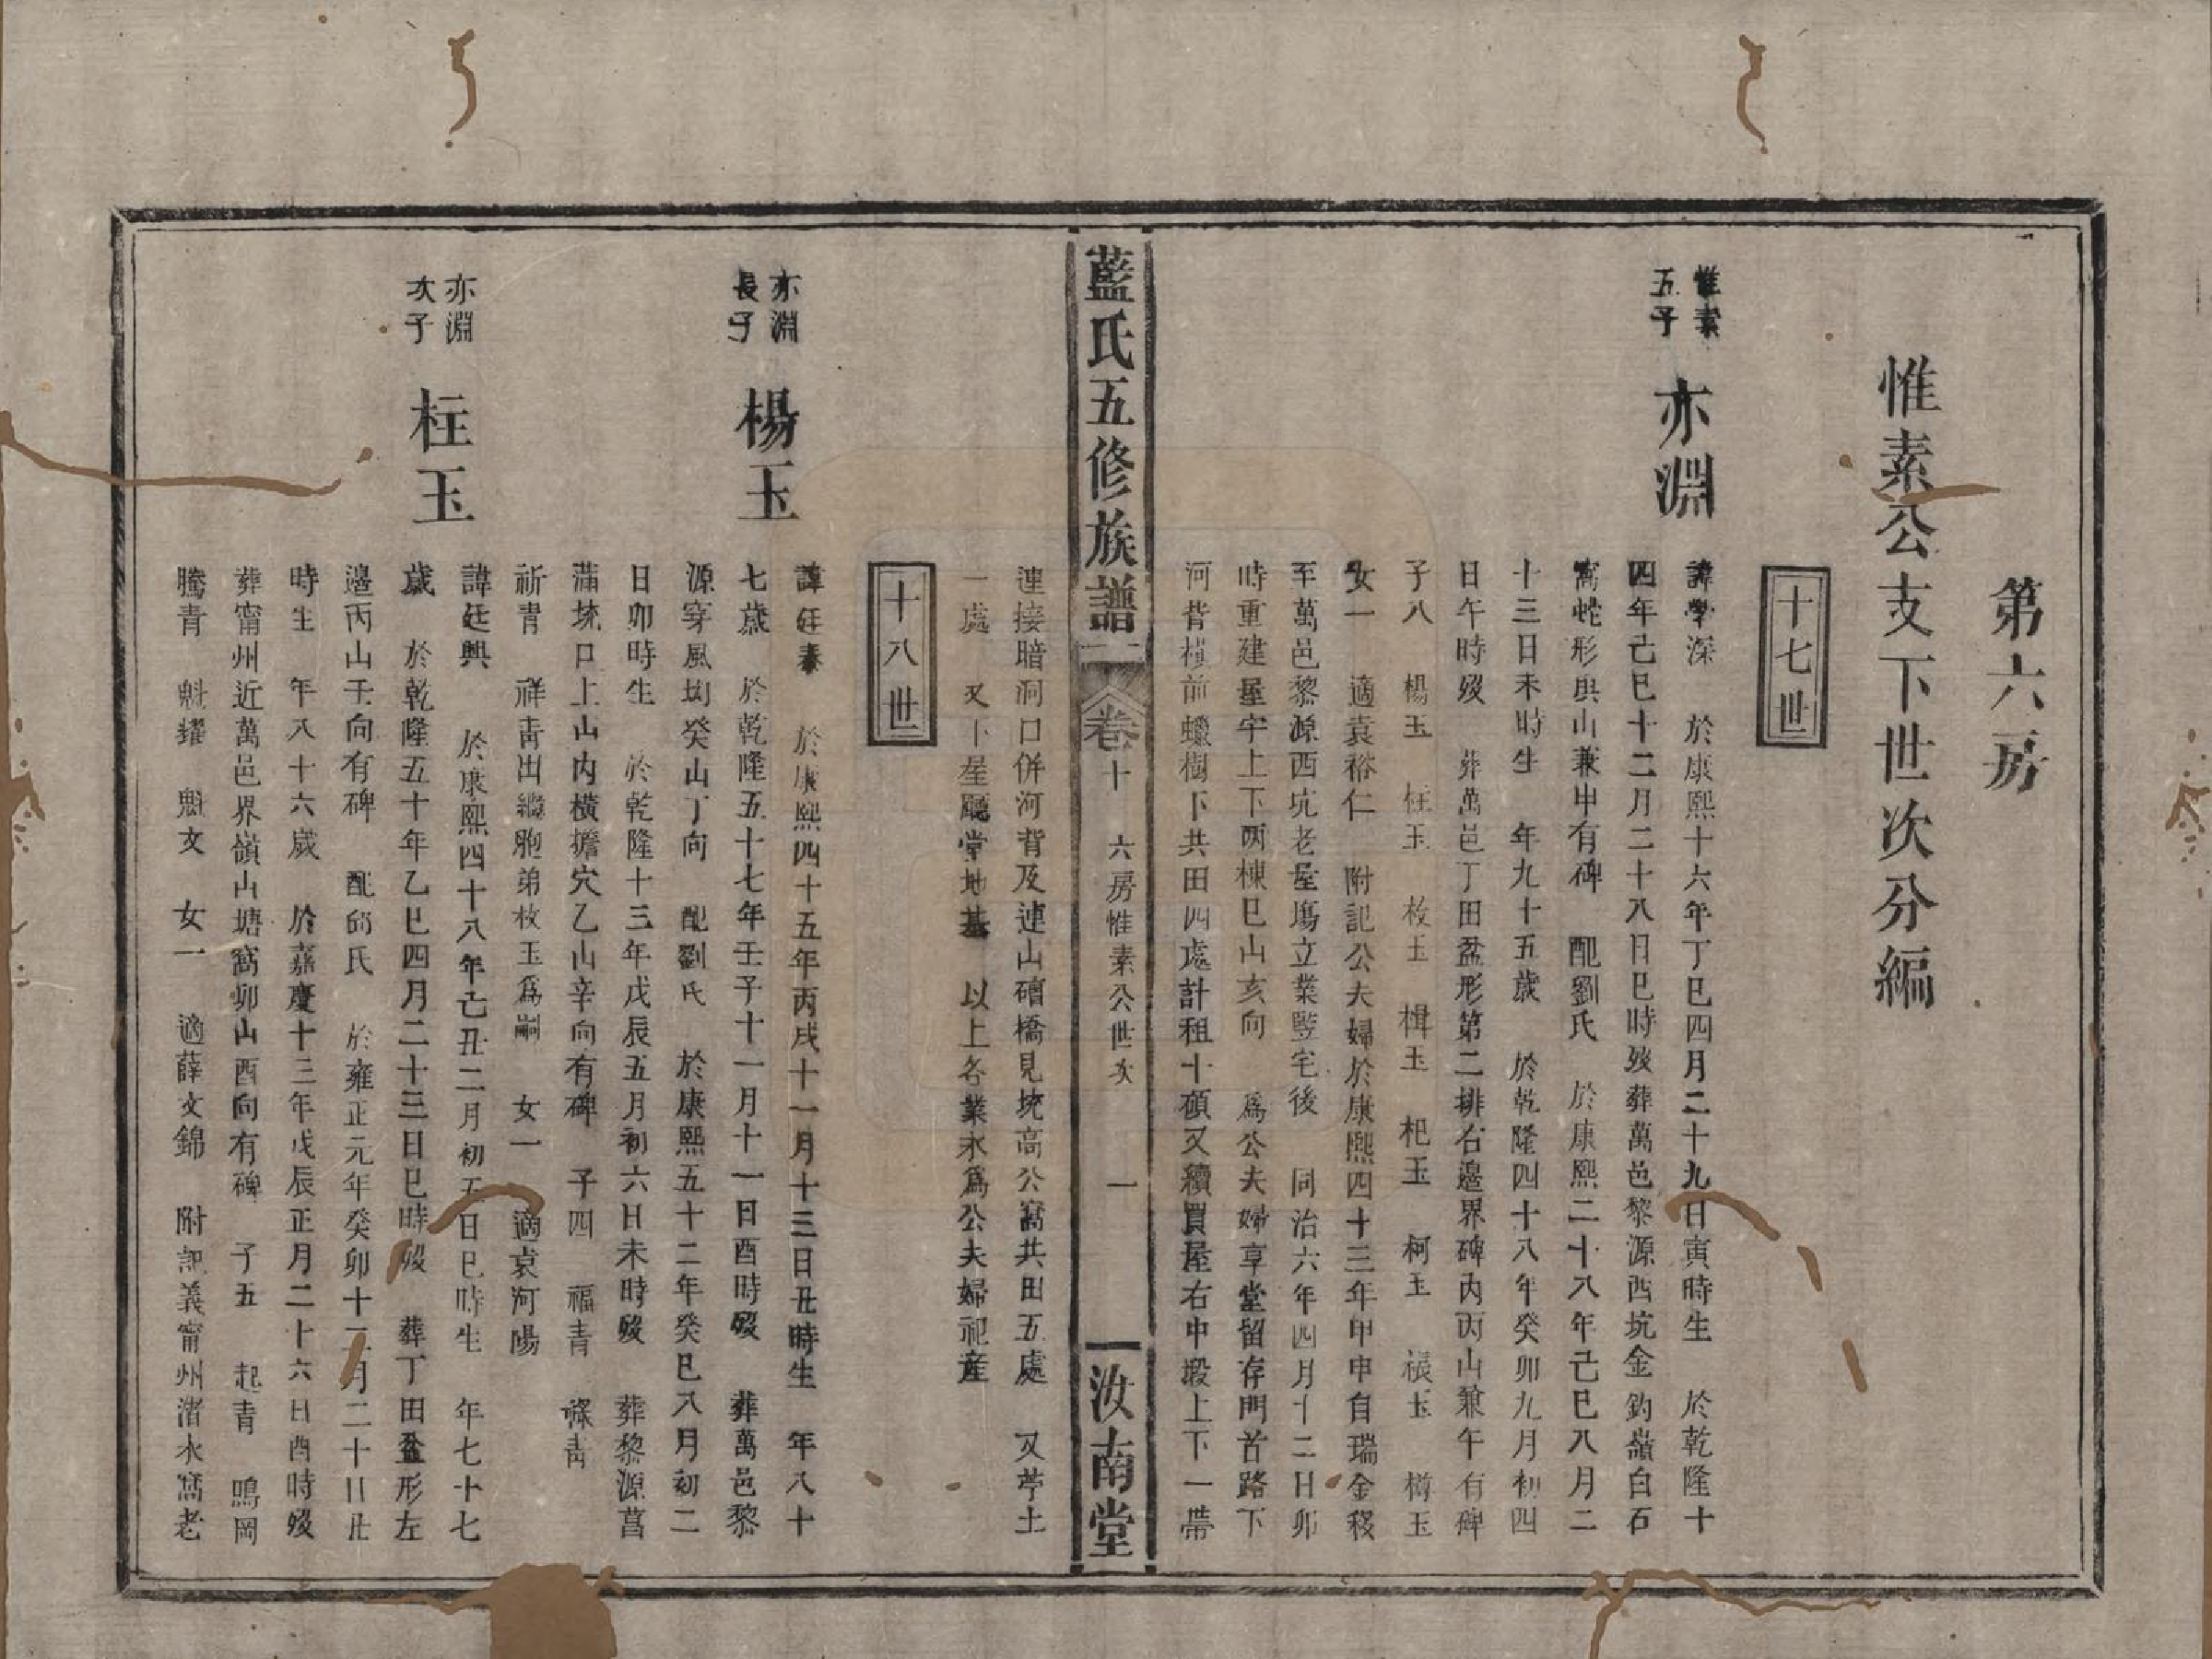 第六房
惟素公支下世次分編
十七世
惟素
五子
亦淵
諱學深 於康熙十六年丁巳四月二十九日寅時生 於乾隆十
四年己巳十二月二十八日巳時歿葬萬邑黎源西坑金鈎嶺白石
窩蛇形與山兼申有碑 配劉氏 於康熙二十八年己巳八月二
十三日未時生 年九十五歲 於乾隆四十八年癸卯九月初四
日午時歿 葬萬邑丁田盆形第二排右邊界碑內丙山兼午有碑
子八 楊玉 柱玉 枚玉 楫玉 杞玉 柯玉 榐玉 樽玉
女一 適袁裕仁 附記公夫婦於康熙四十三年甲申自瑞金移
至萬邑黎源西坑老屋塲立業豎宅後 同治六年四月十二日卯
時重建屋宇上下两棟巳山亥向 爲公夫婦享堂留存門首路下
河背橫前蠟樹下共田四處計租十碩又續買屋右中塅上下一帶
藍氏五修族譜 卷十 六房惟素公世次 一 汝南堂
連接暗洞口併河背及連山磳橋見垅高公窩共田五處 又苧土
一處 又下屋廳堂地基 以上各業永爲公夫婦祀產
十八世
亦淵
長子
楊玉
諱廷泰 於康熙四十五年丙戌十一月十三日丑時生 年八十
七歲 於乾隆五十七年壬子十一月十一日酉時歿 葬萬邑黎
源穿風坳癸山丁向 配劉氏 於康熙五十二年癸巳八月初二
日卯時生 於乾隆十三年戊辰五月初六日未時歿 葬黎源菖
蒲垅口上山內橫擔穴乙山辛向有碑 子四 福青 祿青
祈青 祥青出繼胞弟枚玉爲嗣 女一 適袁河陽
亦淵
次子
柱玉
諱廷興 於康熙四十八年己丑二月初五日巳時生 年七十七
歲 於乾隆五十年乙巳四月二十三日巳時歿 葬丁田盆形左
邊丙山壬向有碑 配邱氏 於雍正元年癸卯十二月二十日丑
時生 年八十六歲 於嘉慶十三年戊辰正月二十六日酉時歿
葬甯州近萬邑界嶺山塘窩卯山酉向有碑 子五 起青 鳴岡
騰青 魁耀 魁文 女一 適薛文錦 附記義甯州渣水窩老